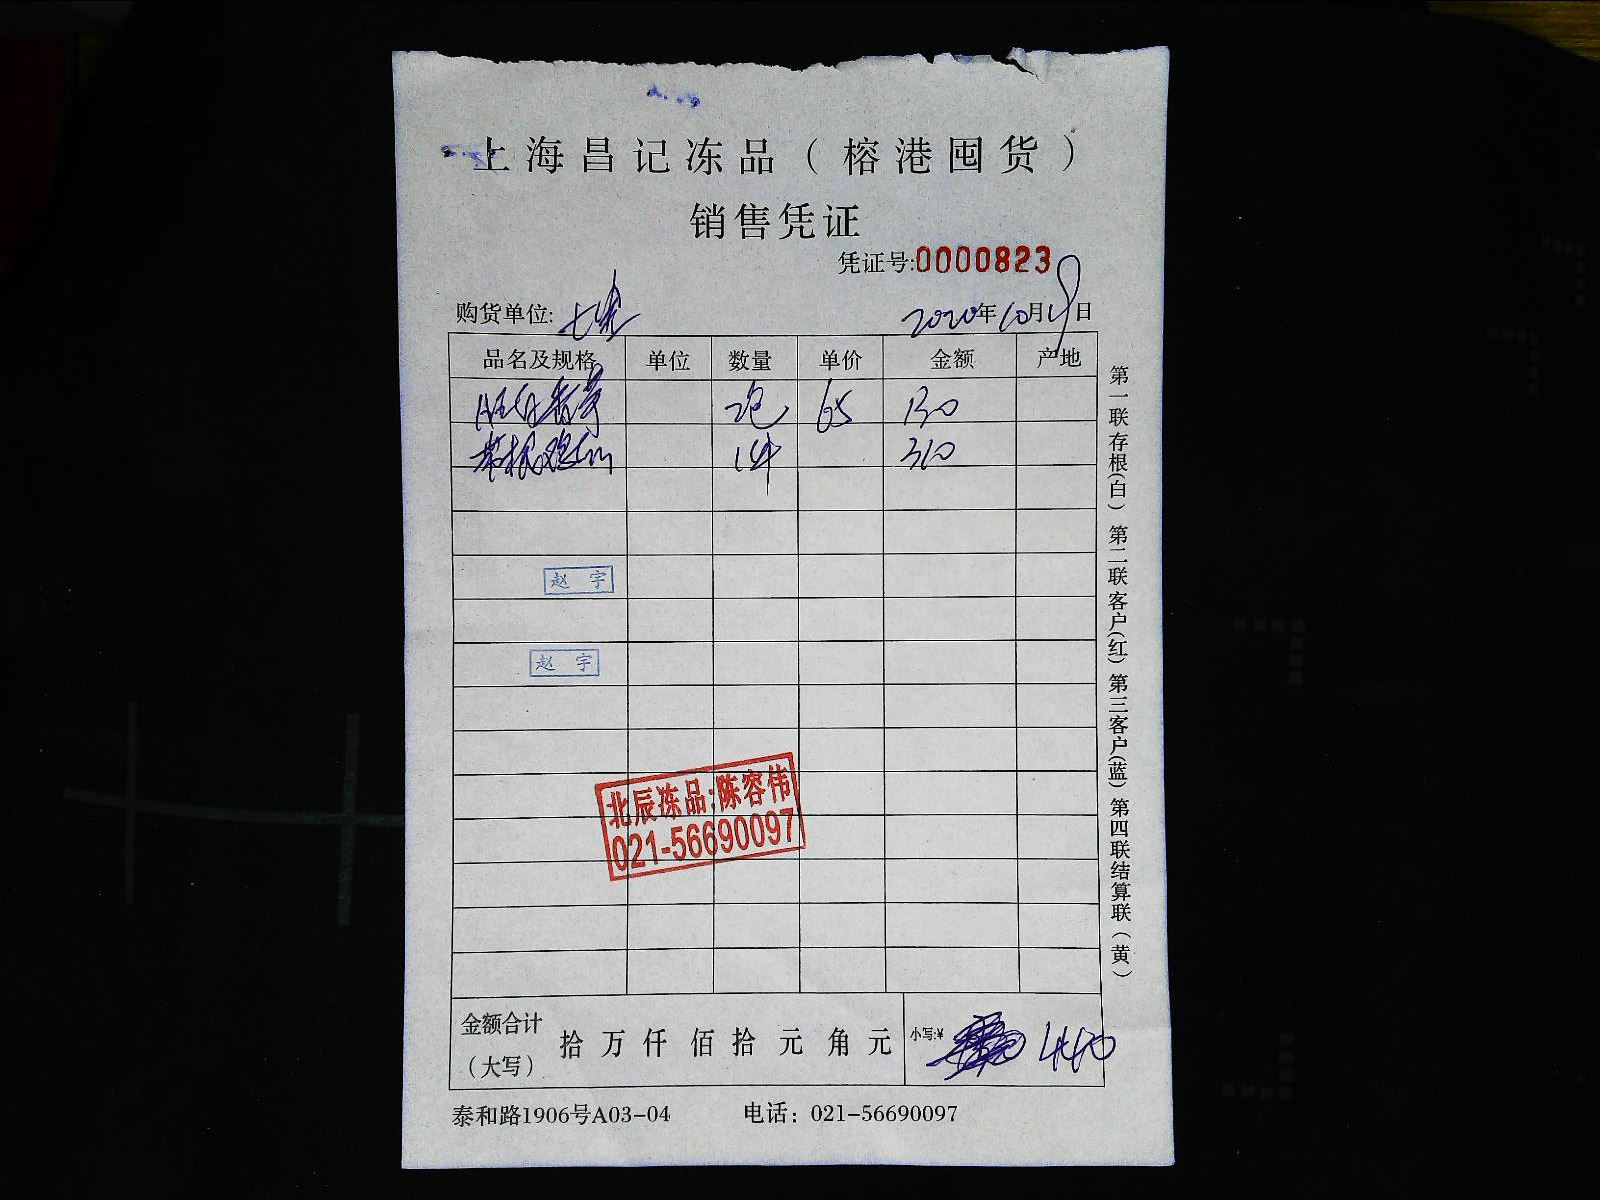 上海昌记冻品（榕港囤货）
销售凭证
凭证号:0000823
购货单位:
2020年10月19日
品名及规格 单位 数量 单价 金额 产地
2包 65 130
1件 310
赵 宇
赵 宇
北辰冻品:陈容伟
021-56690097
金额合计（大写） 拾 万 仟 佰 拾 元 角 元 小写:¥ 440
泰和路1906号A03-04 电话：021-56690097
第一联存根(白) 第二联客户(红) 第三客户(蓝) 第四联结算联（黄）